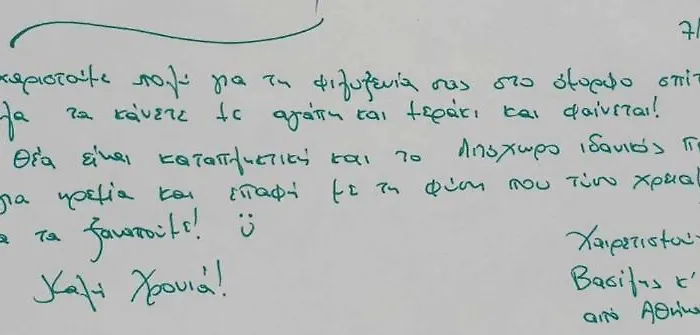 7/
χαριστούμε πολύ για τη φιλοξενία σας στο όμορφο σπίτ
λα τα κάνετε με αγάπη και μεράκι και φαίνεται!
Θέα είναι καταπληκτική και το Λιπόχωρο ιδανικός π
για ηρεμία και επαφή με τη φύση που τόσο χρεια
α τα ξαναπούμε!
Χαιρετισμού
Καλή Χρονιά!
Βασίλης κ'
από Αθήνα